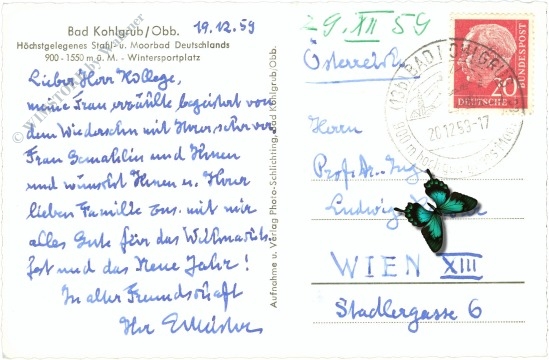 Bad Kohlgrub/Obb.
Höchstgelegenes Stahl- u. Moorbad Deutschlands
900 - 1550 m ü. M. - Wintersportplatz
19.12.59
Lieber Herr Kollege,
meine Frau erzählte begeistert von
dem Wiedersehn mit Ihrer sehr ver.
Frau Gemahlin und Ihnen
und wünscht Ihnen u. Ihrer
lieben Familie zus. mit mir
alles Gute für das Weihnachts-
fest und das Neue Jahr!
In alter Freundschaft
Ihr
Aufnahme u. Verlag Photo-Schlichting, Bad Kohlgrub/Obb.
29. XII 59
Österreich
Herrn
Prof. Dr. Ing.
Ludwig
WIEN XIII
Stadlergasse 6
BAD KOHLGRUB
20.12.59-17
DEUTSCHE BUNDESPOST
20